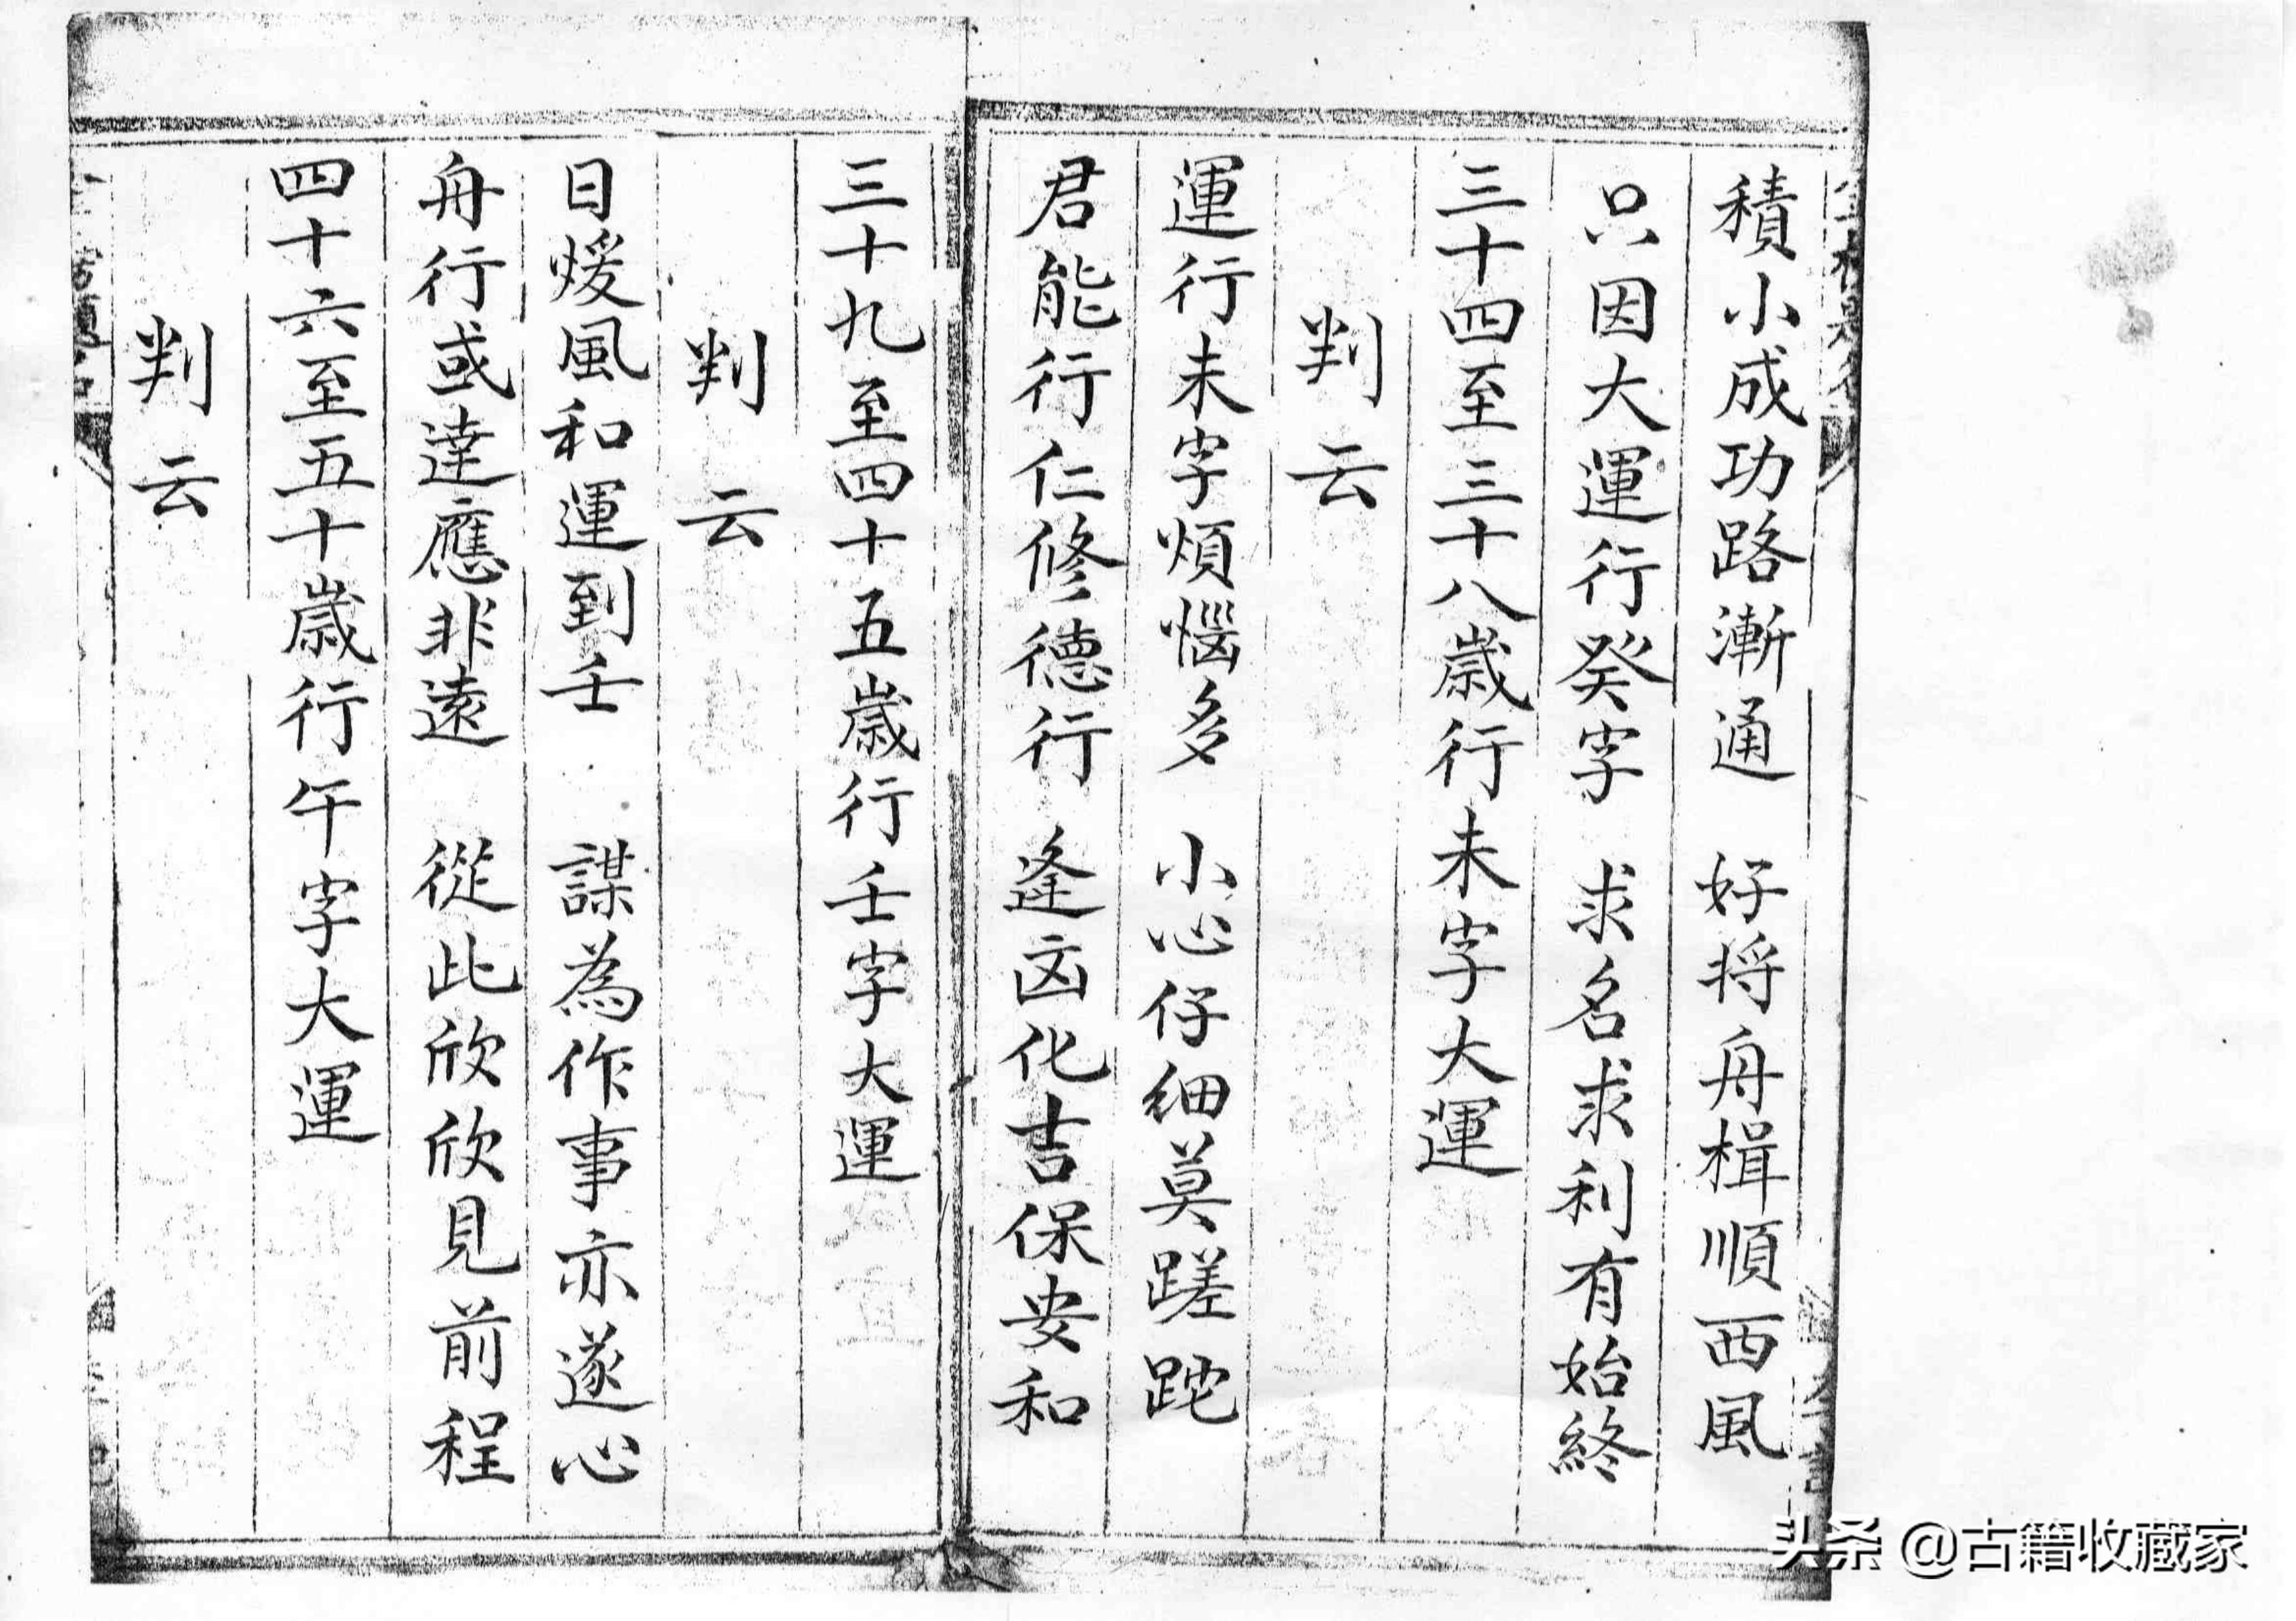 積小成功路漸通　好將舟楫順西風
只因大運行癸字　求名求利有始終
三十四至三十八歲行未字大運
判云
運行未字煩惱多　小心仔細莫蹉跎
君能行仁修德行　逢凶化吉保安和
三十九至四十五歲行壬字大運
判云
日煖風和運到壬　謀為作事亦遂心
舟行或達應非遠　從此欣欣見前程
四十六至五十歲行午字大運
判云
头条 @古籍收藏家